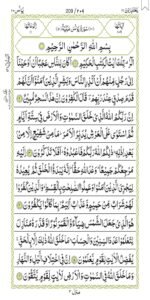 209 / ۲۰۹
بِسْمِ اللهِ الرَّحْمٰنِ الرَّحِيْمِ
الٓرٰ تِلْكَ اٰيٰتُ الْكِتٰبِ الْحَكِيْمِ اَكَانَ لِلنَّاسِ عَجَبًا اَنْ اَوْحَيْنَاۤ
اِلٰى رَجُلٍ مِّنْهُمْ اَنْ اَنْذِرِ النَّاسَ وَبَشِّرِ الَّذِيْنَ اٰمَنُوْۤا اَنَّ لَهُمْ
قَدَمَ صِدْقٍ عِنْدَ رَبِّهِمْ قَالَ الْكٰفِرُوْنَ اِنَّ هٰذَا لَسٰحِرٌ مُّبِيْنٌ
اِنَّ رَبَّكُمُ اللهُ الَّذِيْ خَلَقَ السَّمٰوٰتِ وَالْاَرْضَ فِيْ سِتَّةِ اَيَّامٍ
ثُمَّ اسْتَوٰى عَلَى الْعَرْشِ يُدَبِّرُ الْاَمْرَ مَا مِنْ شَفِيْعٍ اِلَّا مِنْۢ بَعْدِ
اِذْنِهٖ ذٰلِكُمُ اللهُ رَبُّكُمْ فَاعْبُدُوْهُ اَفَلَا تَذَكَّرُوْنَ اِلَيْهِ
مَرْجِعُكُمْ جَمِيْعًا وَعْدَ اللهِ حَقًّا اِنَّهٗ يَبْدَؤُا الْخَلْقَ ثُمَّ يُعِيْدُهٗ
لِيَجْزِيَ الَّذِيْنَ اٰمَنُوْا وَعَمِلُوا الصّٰلِحٰتِ بِالْقِسْطِ وَالَّذِيْنَ كَفَرُوْا
لَهُمْ شَرَابٌ مِّنْ حَمِيْمٍ وَّعَذَابٌ اَلِيْمٌۢ بِمَا كَانُوْا يَكْفُرُوْنَ
هُوَ الَّذِيْ جَعَلَ الشَّمْسَ ضِيَآءً وَّالْقَمَرَ نُوْرًا وَّقَدَّرَهٗ مَنَازِلَ
لِتَعْلَمُوْا عَدَدَ السِّنِيْنَ وَالْحِسَابَ مَا خَلَقَ اللهُ ذٰلِكَ اِلَّا بِالْحَقِّ
يُفَصِّلُ الْاٰيٰتِ لِقَوْمٍ يَّعْلَمُوْنَ اِنَّ فِي اخْتِلَافِ الَّيْلِ وَالنَّهَارِ
وَمَا خَلَقَ اللهُ فِي السَّمٰوٰتِ وَالْاَرْضِ لَاٰيٰتٍ لِّقَوْمٍ يَّتَّقُوْنَ